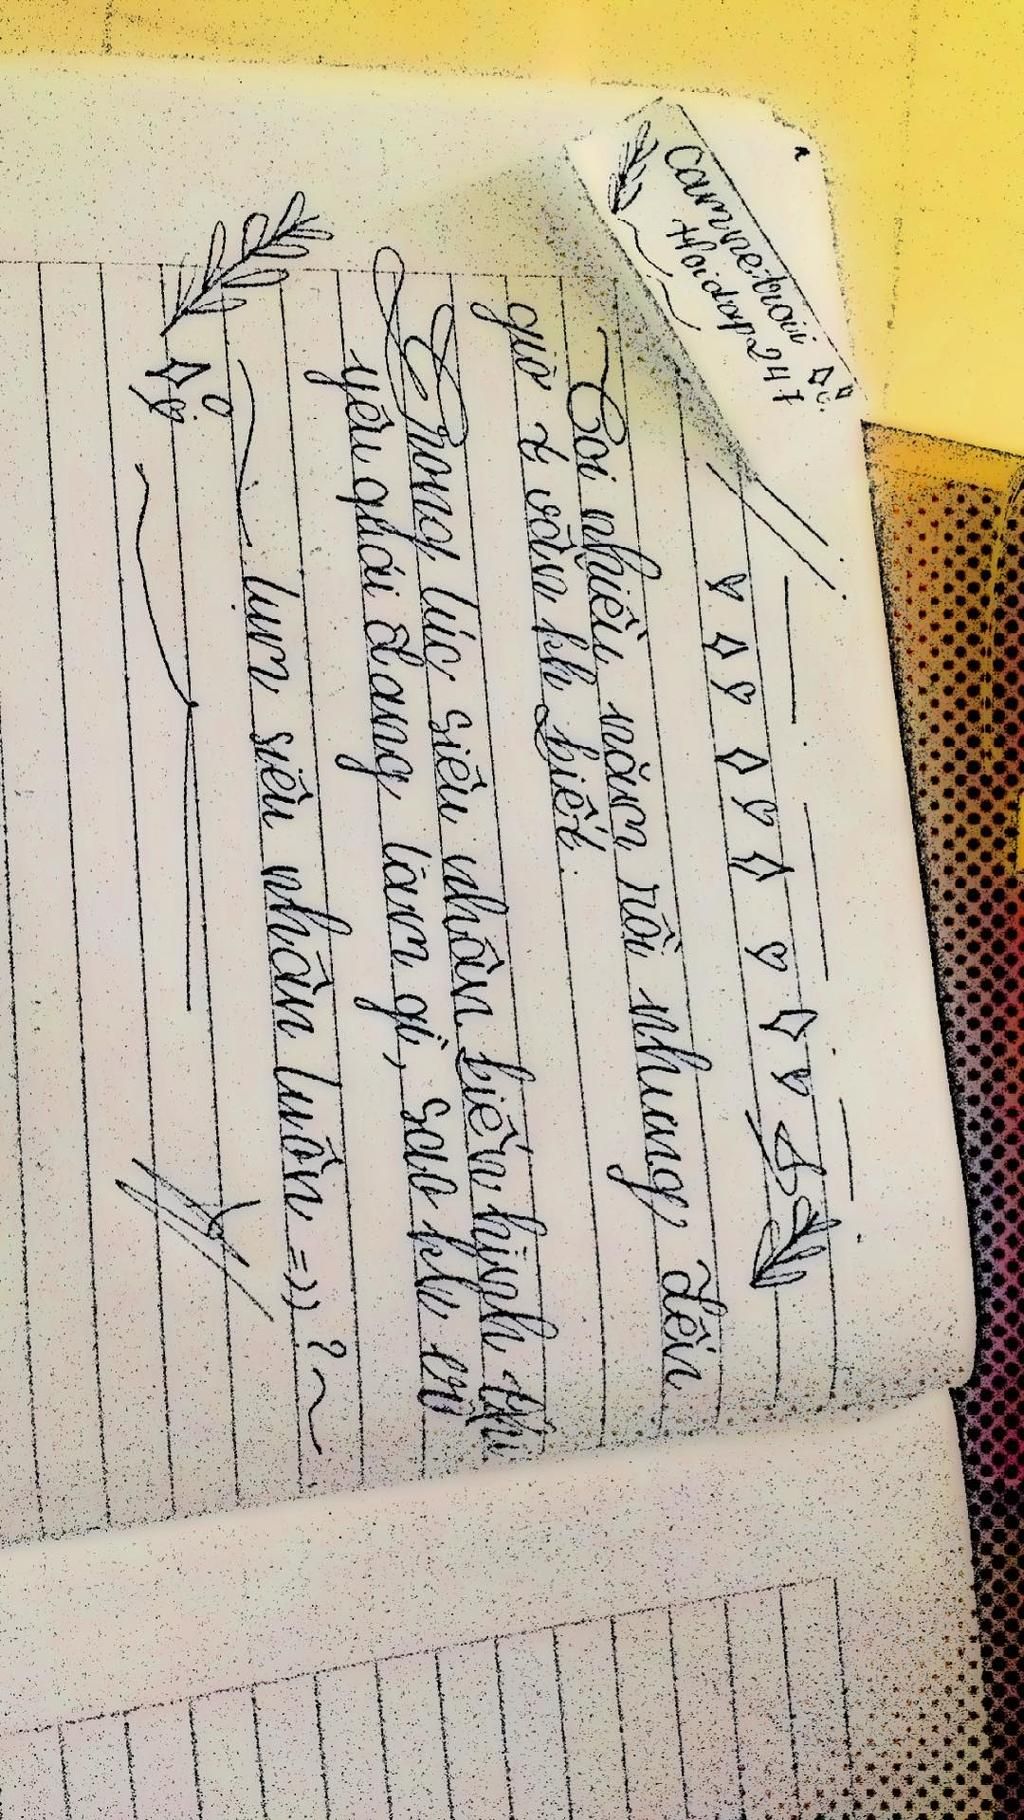 Camnetraiii
Hoidap247
Coi nhiều năm rồi nhưng đến
giờ t vẫn kh biết.
Trong lúc siêu nhân biến hình thì
yêu quái đang làm gì, sao kh
lụm siêu nhân luôn =)) ? ~